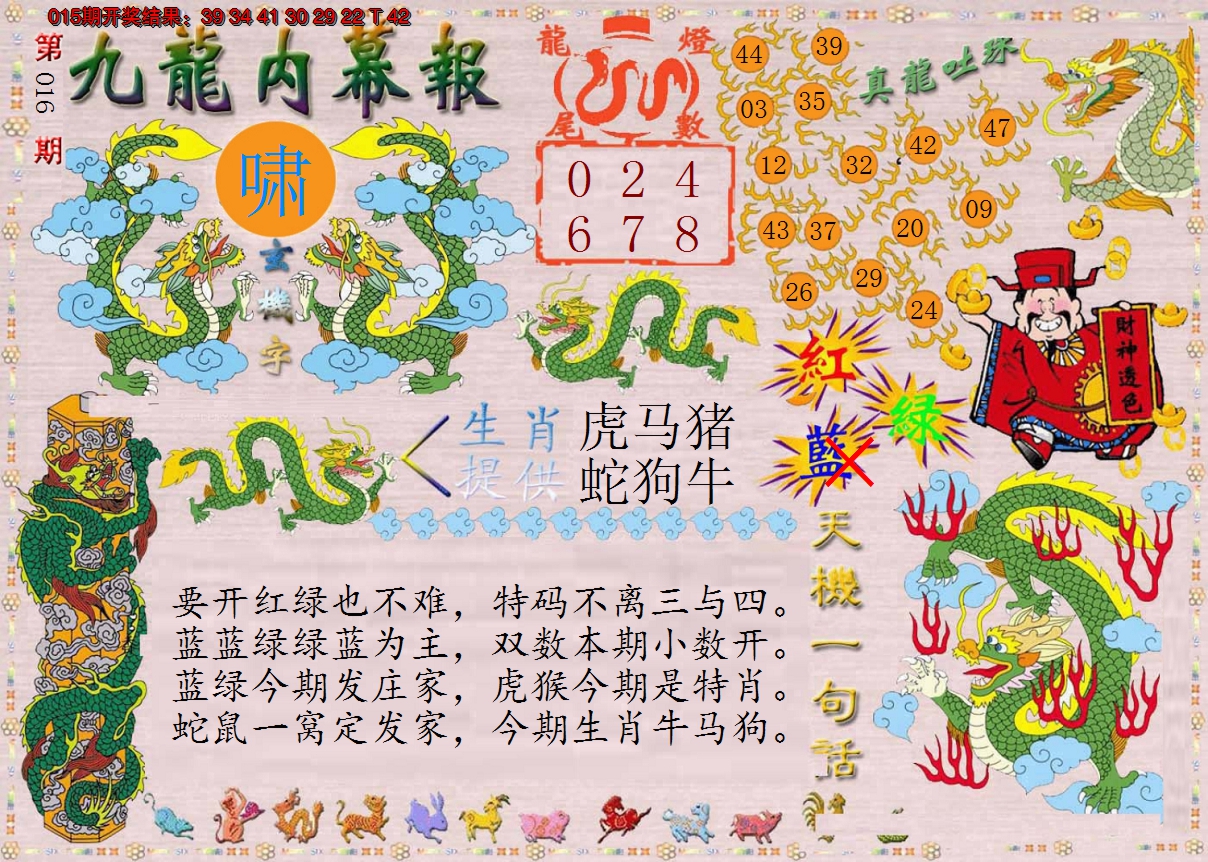 015期开奖结果：39 34 41 30 29 22 T 42
第016期
九龍内幕報
啸
玄機字
龍燈
尾數
0 2 4
6 7 8
真龍吐珠
44 39
03 35
12 32 42 47
43 37 20 09
26 29 24
財神透色
紅
绿
藍
生肖提供
虎马猪
蛇狗牛
天機一句话
要开红绿也不难，特码不离三与四。
蓝蓝绿绿蓝为主，双数本期小数开。
蓝绿今期发庄家，虎猴今期是特肖。
蛇鼠一窝定发家，今期生肖牛马狗。